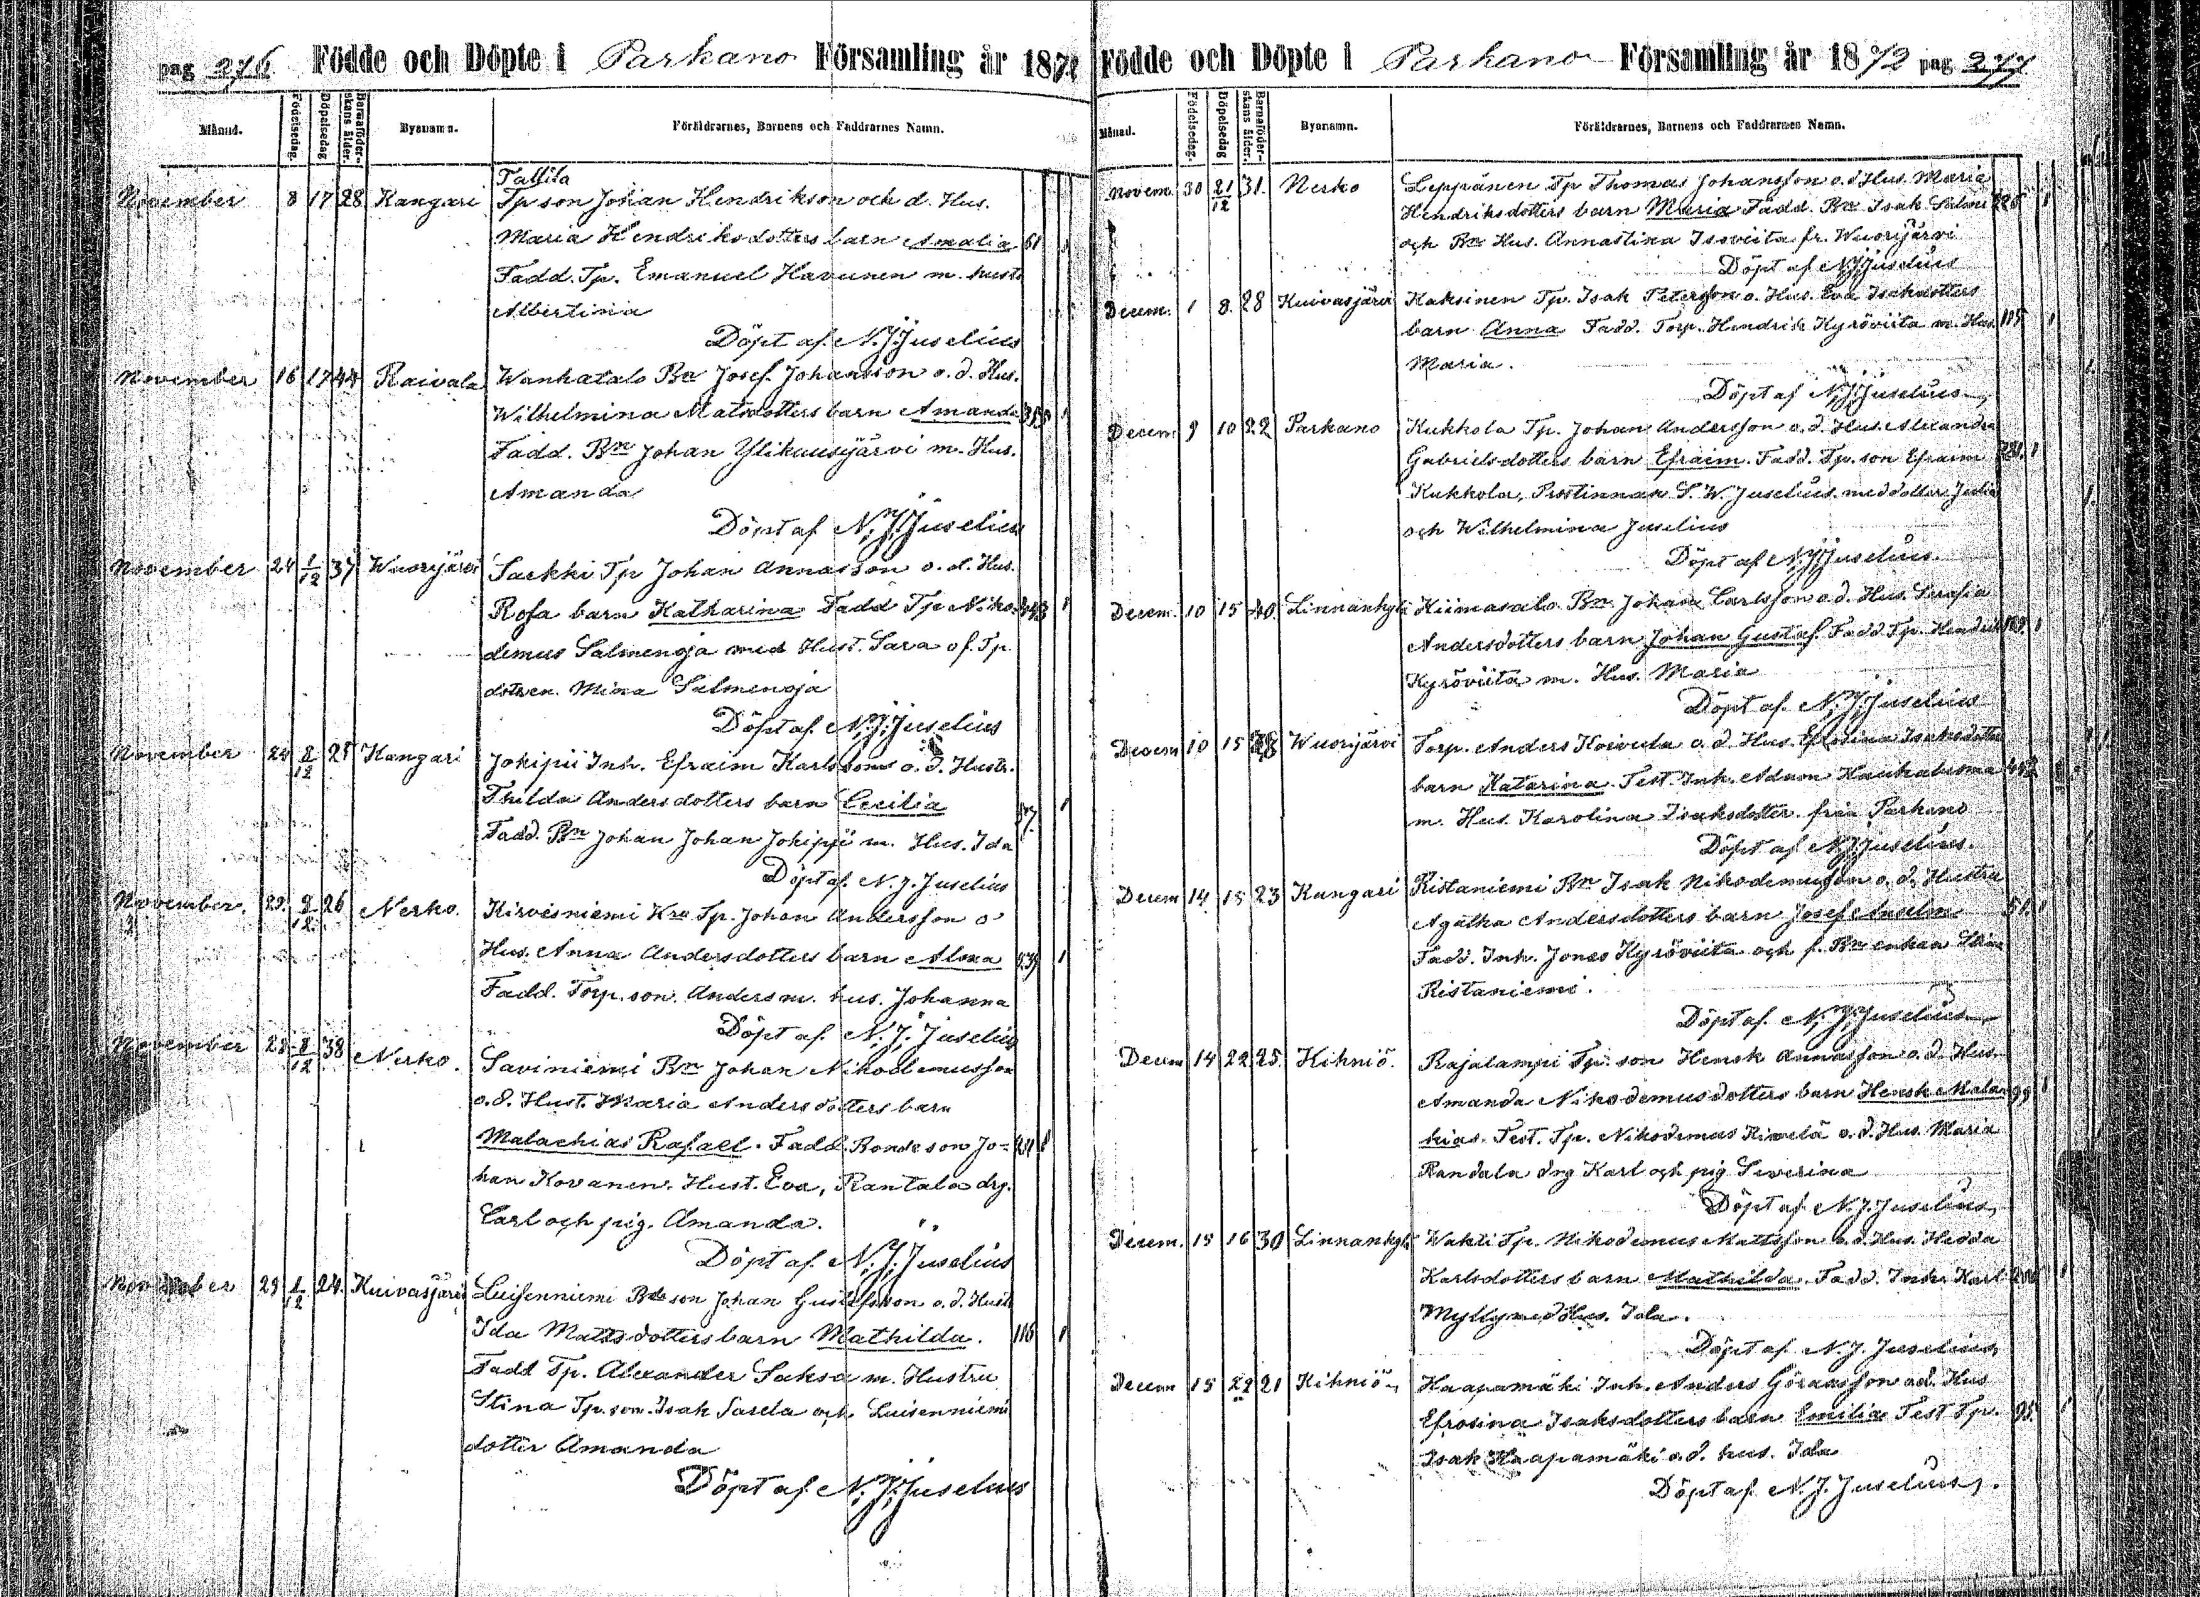 pag 276 Födde och Döpte i Parkano Församling år 1872
Månad. Födelsedag. Döpelsedag Barnaföderskans ålder. Bysnamn. Föräldrarnes, Barnens och Faddrarnes Namn.
Tallila
November 8 17 28 Kangari Tp son Johan Hendrikson och d. Hus.
Maria Hendriksdotters barn Amalia 61
Fadd. Tp. Emanuel Havunen m. hustr
Albertina
Döpt af. N. J. Juselius
November 16 17 44 Raivala Wanhatalo Bn Josef Johansson o. d. Hus.
Wilhelmina Matsdotters barn Amanda
Fadd. Bn Johan Ylikausjärvi m. Hus.
Amanda
Döpt af N. J. Juselius
November 24 1/12 37 Wuorijärvi Sarkki Tp Johan Annasson o. d. Hus.
Rosa barn Katharina Fadd Tp Niko-
demus Salmenoja med Hust. Sara o f. Tp.
dotren. Mina Salmenoja
Döpt af. N. J. Juselius
November 24 8/12 25 Kangari Jokipii Inh. Efraim Karlssons o. d. Hustr.
Thilda Andersdotters barn Cecilia
Fadd. Bn Johan Johan Jokipii m. Hus. Ida
Döpt af. N. J. Juselius
November. 29. 8/12 26 Nerko. Kirvesniemi Kro Tp. Johan Andersson o
Hus. Anna Andersdotters barn Alma 239
Fadd. Torp. son. Anders m. hus. Johanna
Döpt af. N. J. Juselius
November 28 8/12 38 Nerko. Saviniemi Bn Johan Nikodemusson
o. d. Hust. Maria Andersdotters barn
Malachias Rafael. Fadd. Bonde son Jo-
han Kovanen. Hust. Eva, Rantala drg.
Carl och pig. Amanda.
Döpt af. N. J. Juselius
November 29 1/12 24. Kuivasjärvi Luisenniemi Bde son Johan Gustafsson o. d. Hust
Ida Mattsdotters barn Mathilda. 116 1
Fadd Tp. Alexander Saksa m. Hustru
Stina Tp. son. Isak Sarela och Luisenniemi
dotter Amanda
Döpt af. N. J. Juselius
Födde och Döpte i Parkano Församling år 1872 pag 277
Månad. Födelsedag. Döpelsedag Barnaföderskans ålder. Bysnamn. Föräldrarnes, Barnens och Faddrarnes Namn.
Novem. 30 21/12 31. Nerko Leppänen Tp Thomas Johansson o. d Hus. Maria
Hendriksdotters barn Maria Fadd. Bn Isak Salmi
och Bn Hus. Annastina Isoviita fr. Wuorijärvi
Döpt af N. J. Juselius
Decem. 1 8. 28 Kuivasjärvi Kaksinen Tp. Isak Petersson o. Hus. Eva Isaksdotters
barn Anna Fadd. Torp. Hendrik Kyröviita m. Hus. 115
Maria.
Döpt af N. J. Juselius
Decem 9 10 22 Parkano Kukkola Tp. Johan Andersson o. d. Hus. Alexandra
Gabrielsdotters barn Efraim. Fadd. Tp. son Efraim
Kukkola, Prostinnan S. W. Juselius med dotter Julia
och Wilhelmina Juselius
Döpt af N. J. Juselius.
Decem. 10 15 40. Linnankylä Kiimasalo Bn Johan Carlsson o. d. Hus. Serafia
Andersdotters barn Johan Gustaf. Fadd. Tp. Hendrik
Kyröviita m. Hus. Maria
Döpt af. N. J. Juselius
Decem 10 15 28 Wuorijärvi Torp. Anders Koivula o. d. Hus. Efrosina Isaksdotters
barn Katarina. Test. Inh. Adam Kaukaluoma
m. Hus. Karolina Isaksdotter. från Parkano
Döpt af N. J. Juselius.
Decem 14 15 23 Kangari Ristaniemi Bn Isak Nikodemusson o. d. Hustru
Agatha Andersdotters barn Josef Anselm 51.
Fadd. Inh. Jonas Kyröviita och f. Bn enkan Stina
Ristaniemi.
Döpt af. N. J. Juselius
Decem 14 22 25. Kihniö. Rajalampi Tp. son Henrik Annasson o. d. Hus.
Amanda Nikodemusdotters barn Henrik Mala- 99
kias. Test. Tp. Nikodemus Rimelä o. d. Hus. Maria
Randala drg Karl och pig Severina
Döpt af. N. J. Juselius
Decem. 15 16 30 Linnankylä Wahti Tp. Nikodemus Mattsson o. d. Hus. Hedda
Karlsdotters barn Mathilda. Fadd. Inh. Karl
Mylly med Hus. Ida.
Döpt af. N. J. Juselius
Decem 15 22 21 Kihniö Haapamäki Inh. Anders Göransson o. d. Hus
Efrosina Isaksdotters barn Emilia Test Tp.
Isak Haapamäki o. d. hus. Ida
Döpt af. N. J. Juselius.